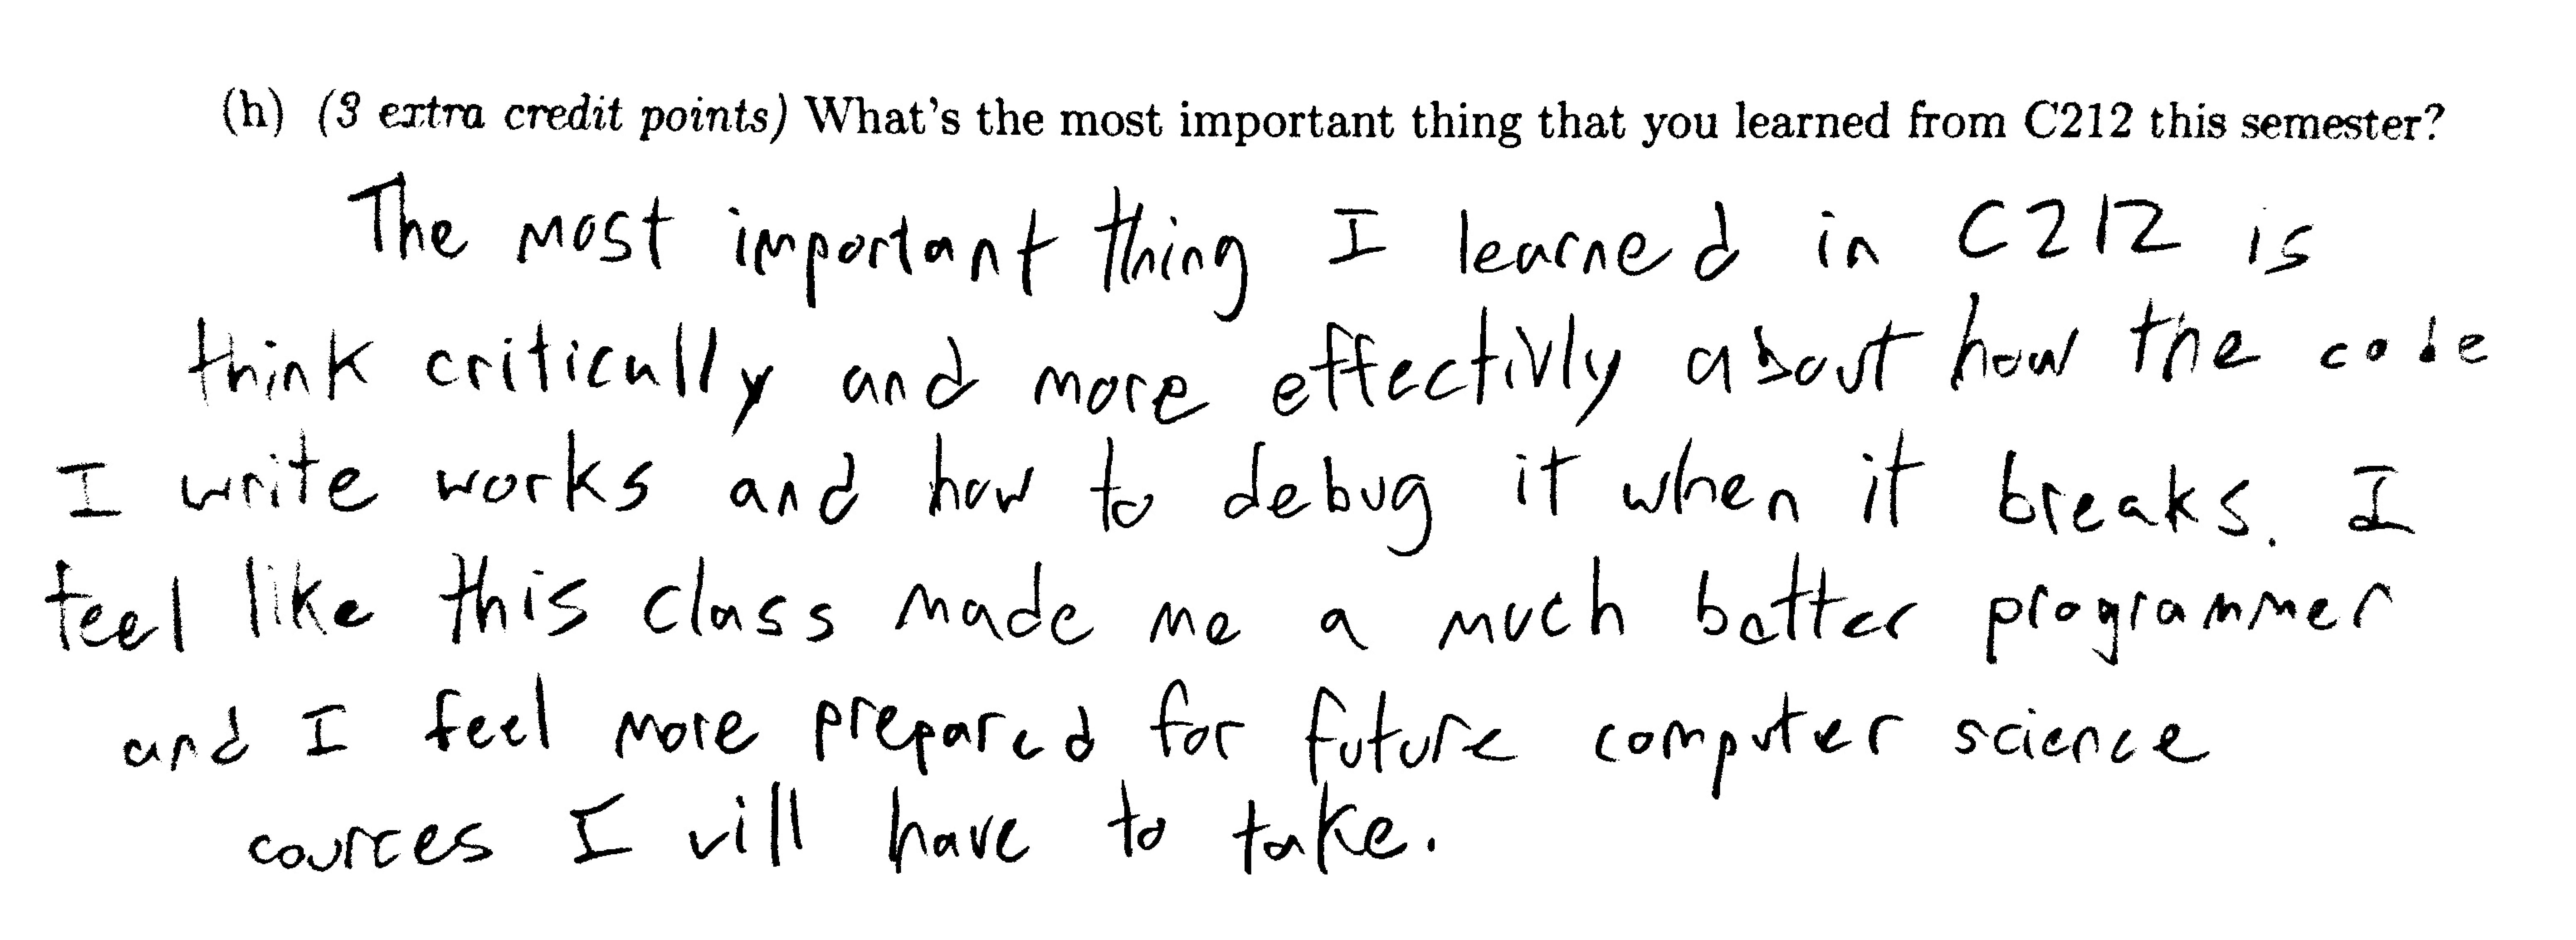 (h) (3 extra credit points) What's the most important thing that you learned from C212 this semester?
The most important thing I learned in C212 is
think critically and more effectivly about how the code
I write works and how to debug it when it breaks. I
feel like this class made me a much better programmer
and I feel more prepared for future computer science
cources I will have to take.